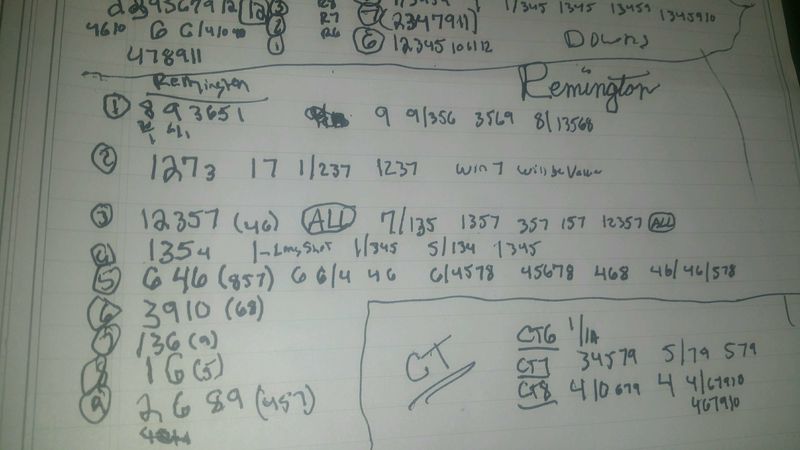 1/345 1345 13459 1345910
4610 6 6/41011 ② R7 ⑦ (2347911)
① R6 ⑥ 12345 10 11 12 Downs
478911
Remington Remington
① 8 9 3 6 5 1 9 9/356 3569 8/13568
② 1273 17 1/237 1237 win 7 will be value
③ 12357 (46) ALL 7/135 1357 357 157 12357 ALL
④ 1354 1-Longshot 1/345 5/134 1345
⑤ 6 46 (857) 6 6/4 46 6/4578 45678 468 46/46/578
⑥ 3910 (68)
⑦ 136 (9)
⑧ 16 (5)
⑨ 2 6 89 (457)
CT
CT6 1/1A
CT7 34579 5/79 579
CT8 4/0679 4 4/67910
467910